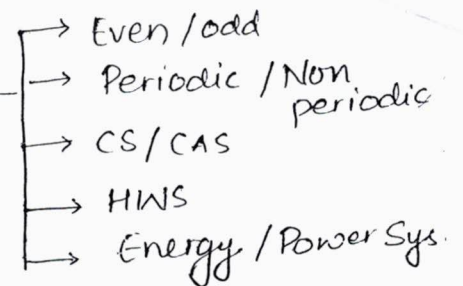 Even / odd
Periodic / Non
periodic
CS / CAS
HWS
Energy / Power Sys.